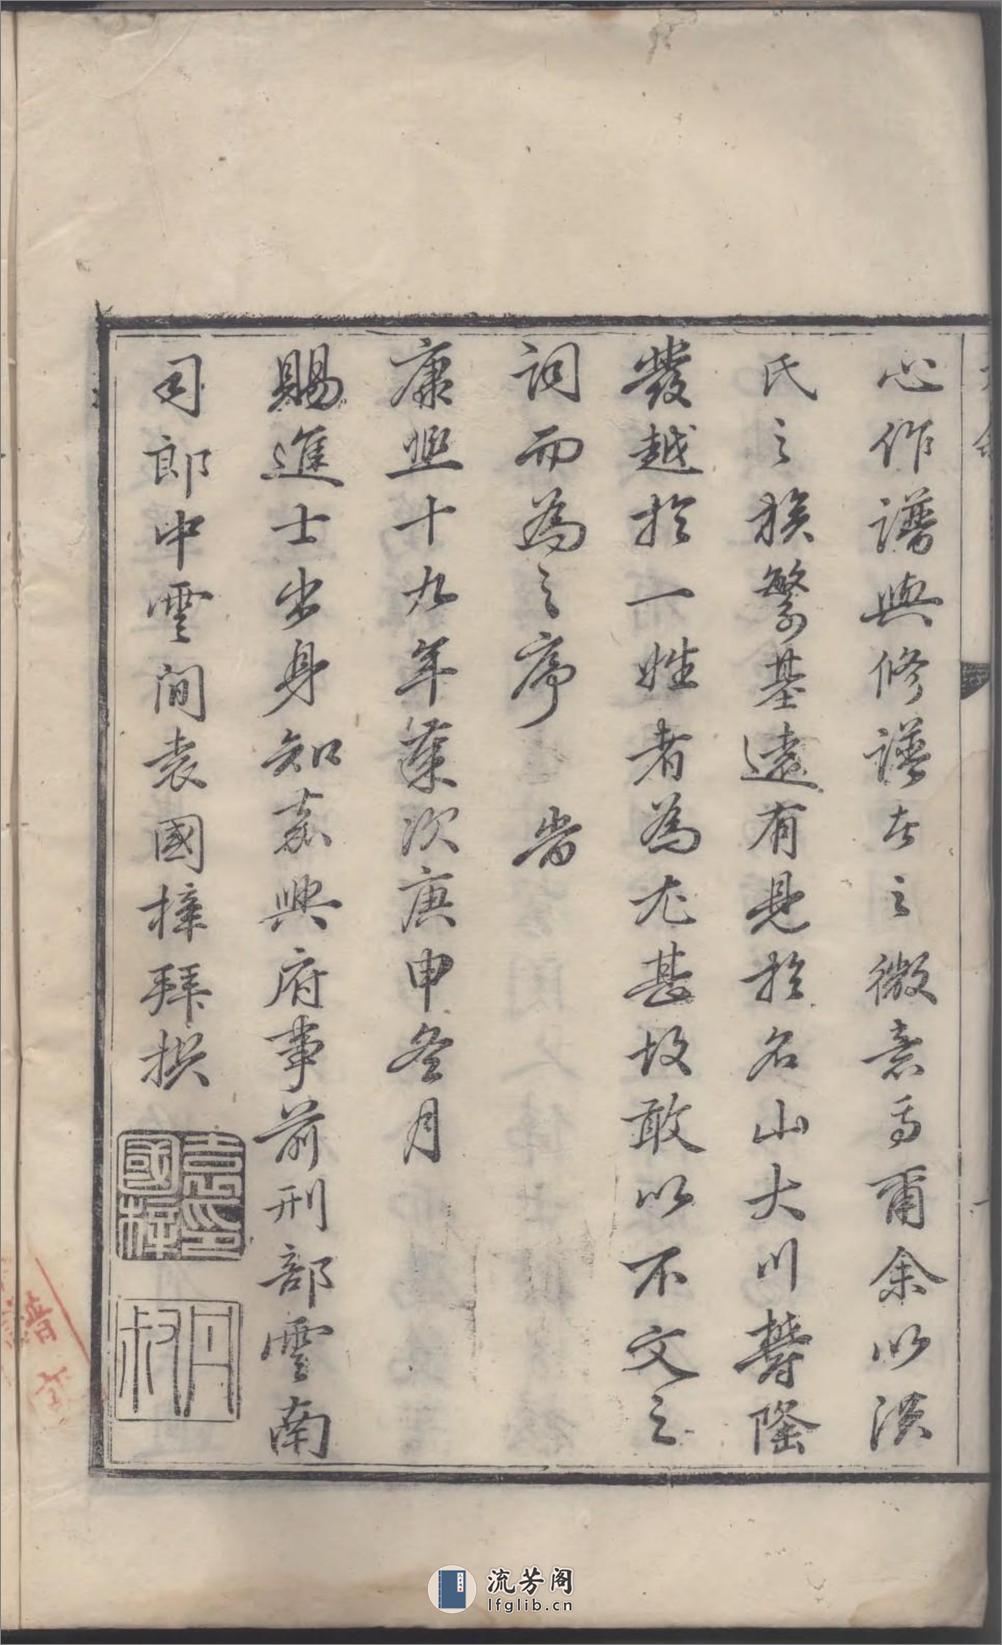 心作譜與修譜者之微意焉爾余以洪
氏之族繁基遠有見於名山大川鬱隆
發越於一姓者為尤甚故敢以不文之
詞而為之序 旹
康熙十九年歲次庚申冬月
賜進士出身知嘉興府事前刑部雲南
司郎中雲間袁國梓拜撰
袁國梓印
丹叔
流芳阁
lfglib.cn